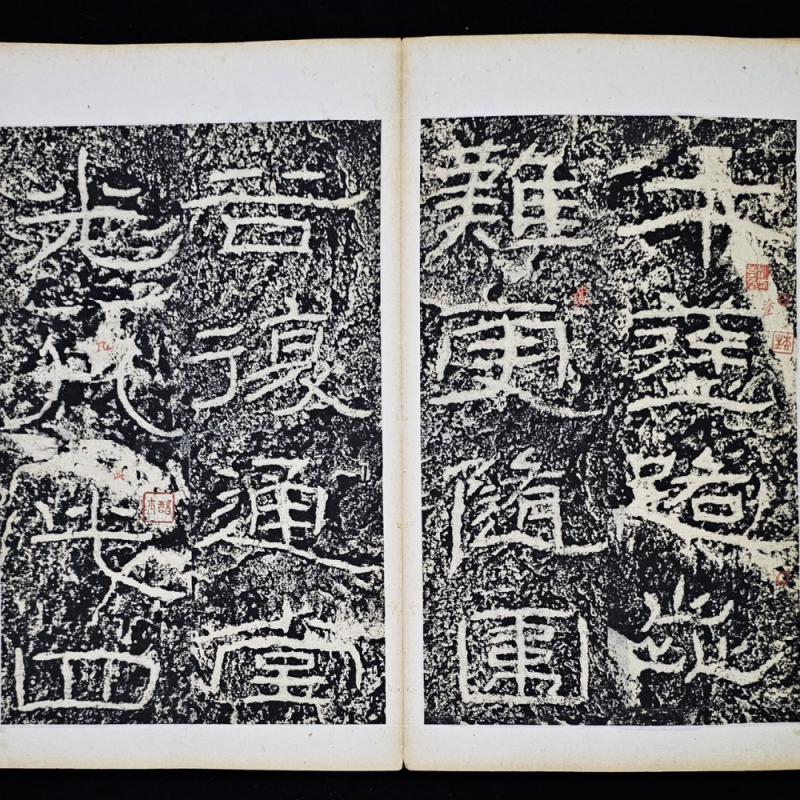 午途路歰
難更隨圍
谷復通堂
光凡此四